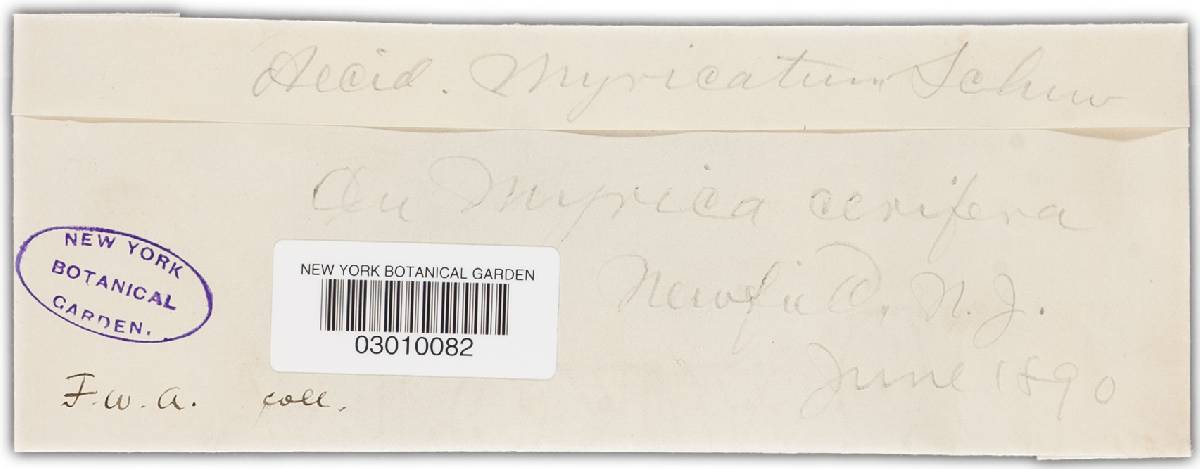 Aecid. Myricatum Schw
On Myrica cerifera
Newfield. N.J.
June 1890
NEW YORK
BOTANICAL
GARDEN.
NEW YORK BOTANICAL GARDEN
03010082
F.W.A. coll.